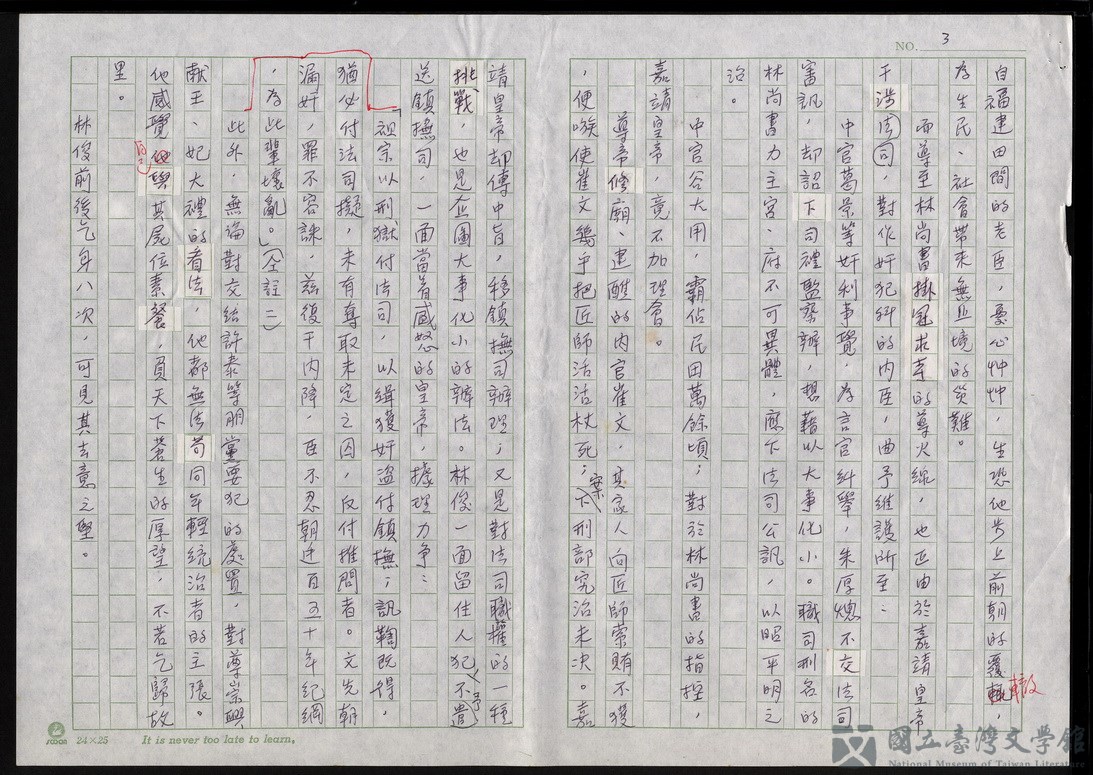 NO. 3
自福建田間的老臣,憂心忡忡,生恐他步上前朝的覆轍,
為生民、社會帶來無止境的災難。
而導至林尚書掛冠求奉的導火線,也正由於嘉靖皇帝
干涉法司,對作奸犯科的內臣,曲予維護所至:
中官葛景等奸利事覺,為言官糾舉,朱厚熜不交法司
審訊,却詔下司禮監察辦,想藉以大事化小。職司刑名的
林尚書力主宮、府不可異體,應下法司公訊,以昭平明之
治。
中官谷大用,霸佔民田萬餘頃;對於林尚書的指控,
嘉靖皇帝,竟不加理會。
導帝修廟、建醮的內官崔文,其家人向匠師索賄不獲
,便嗾使崔文幾乎把匠師活活杖死;案下刑部究治未決。嘉
靖皇帝却傳中旨,移鎮撫司辦理;又是對法司職權的一種
挑戰,也是企圖大事化小的辦法。林俊一面留住人犯不予遣
送鎮撫司,一面當着盛怒的皇帝,據理力爭:
「祖宗以刑獄付法司,以緝獲奸盜付鎮撫;訊鞫既得,
猶必付法司擬,未有奪取未定之囚,反付推問者。文先朝
漏奸,罪不容誅,茲復干內降,臣不忍朝廷百五十年紀綱
,為此輩壞亂。」(仝註二)
此外,無論對交結許泰等朋黨要犯的處置,對尊崇興
獻王、妃大禮的看法,他都無法苟同年輕統治者的主張。
他感覺與其屍位素餐,負天下蒼生的厚望,不若乞歸故
里。
林俊前後乞身八次,可見其去意之堅。
24×25 It is never too late to learn.
國立臺灣文學館
National Museum of Taiwan Literature